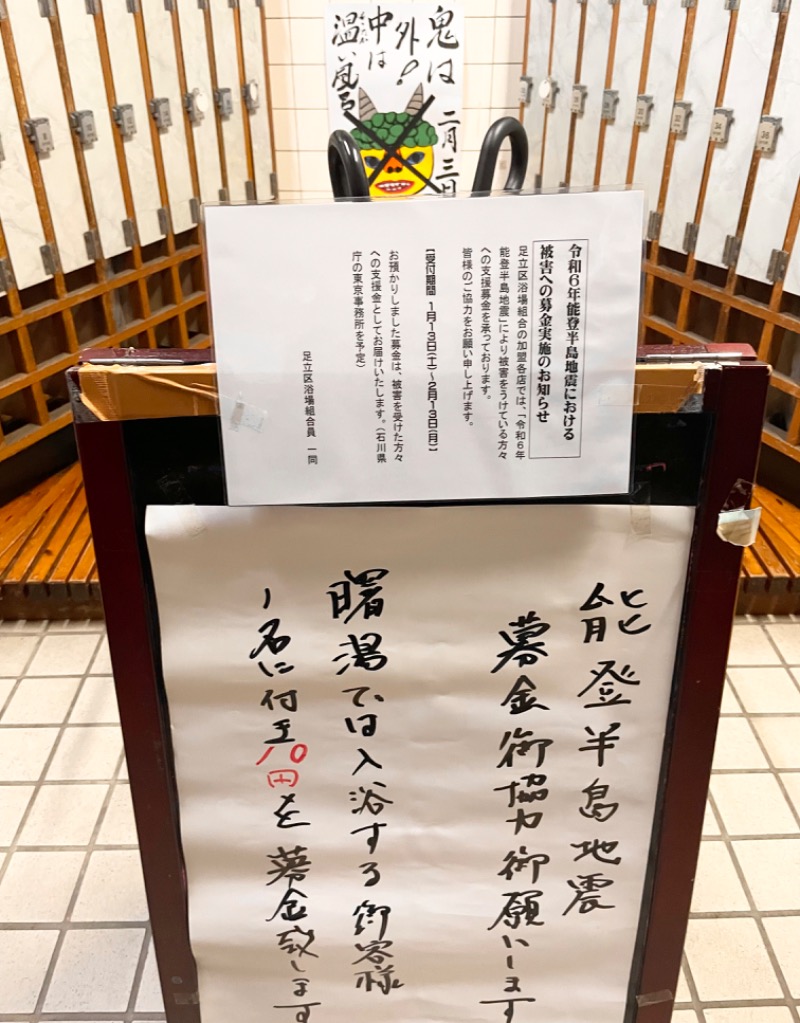 鬼は
外!
中は
温い風呂
二月三日
令和6年能登半島地震における
被害への募金実施のお知らせ
足立区浴場組合の加盟各店では、「令和6年
能登半島地震」により被害をうけている方々
への支援募金を承っております。
皆様のご協力をお願い申し上げます。
【受付期間 1月13日(土)~2月13日(月)】
お預かりしました募金は、被害を受けた方々
への支援金としてお届けいたします。(石川県
庁の東京事務所を予定)
足立区浴場組合員 一同
能登半島地震
募金御協力御願いします
曙湯では入浴する御客様
1名に付き10円を募金致します